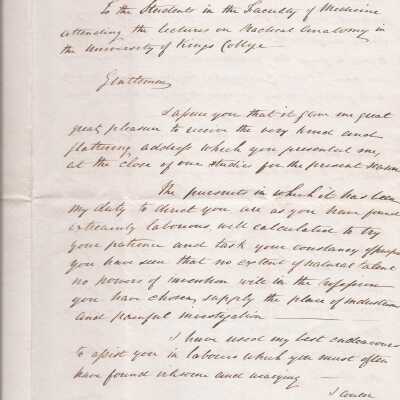 To the Students in the Faculty of Medicine
attending the lectures on Practical Anatomy in
the University of Kings College
Gentlemen
I assure you that it gave me great
great pleasure to receive the very kind and
flattering address which you presented me,
at the close of our studies for the present season
The pursuits in which it has been
my duty to direct you are as you have found
extremely labourious, well calculated to try
your patience and task your constancy of purpose
you have seen that no extent of natural talent
no powers of invention will in the profession
you have chosen, supply the place of industrious
and painful investigation
I have used my best endeavours
to assist you in labours which you must often
have found irksome and wearying